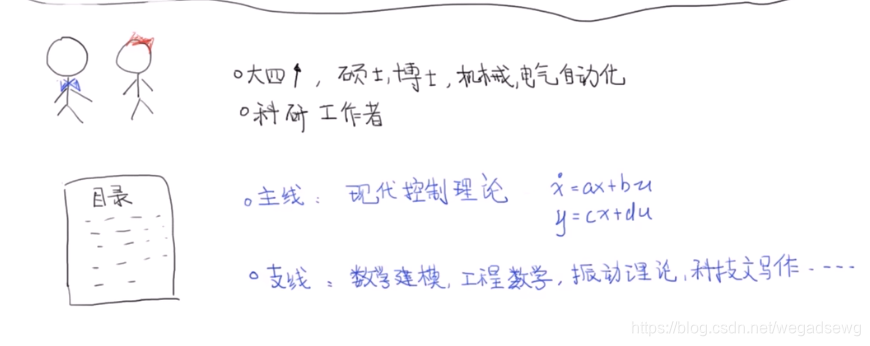 ○大四↑, 硕士,博士, 机械,电气自动化
○科研工作者
目录
○主线: 现代控制理论 ẋ=ax+bu
y=cx+du
○支线: 数学建模, 工程数学, 振动理论, 科技文写作 ·----
https://blog.csdn.net/wegadsewg